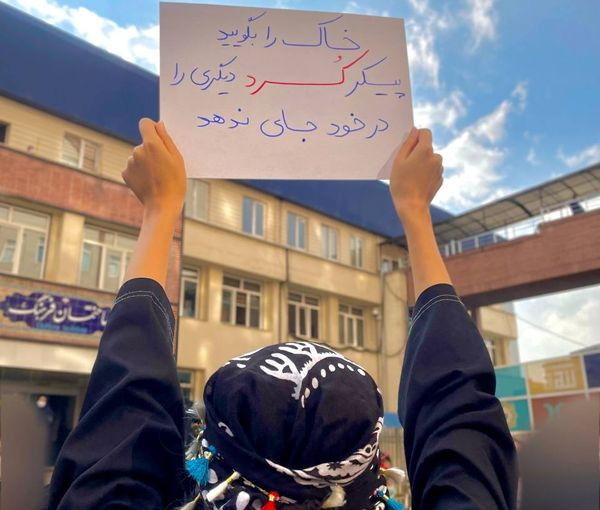 خاک را بگویید
پیسکر کُرد دیگری را
در خود جای ندهد
ساختمان فرهنگ